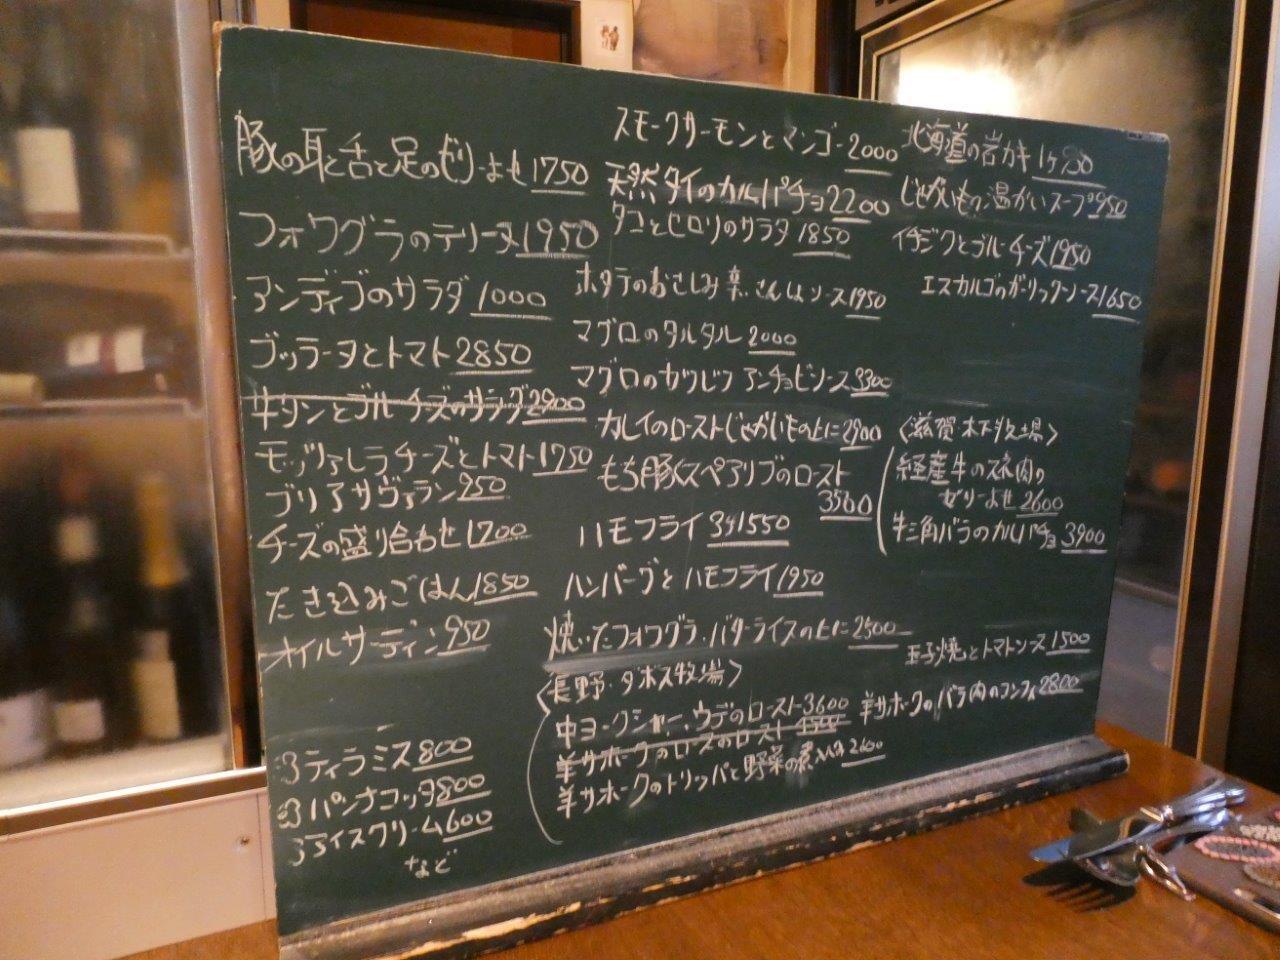 豚の耳と舌と足のゼリーよせ 1750
フォワグラのテリーヌ 1950
アンディブのサラダ 1000
ブッラータとトマト 2850
牛タンとブルーチーズのサラダ 2900
モッツァレラチーズとトマト 1750
ブリアサヴァラン 950
チーズの盛り合わせ 1700
たき込みごはん 1850
オイルサーディン 950
ティラミス 800
パンナコッタ 800
アイスクリーム 600
など
スモークサーモンとマンゴー 2000
天然タイのカルパチョ 2200
タコとセロリのサラダ 1850
ホタテのおさしみ 実ざんしょソース 1950
マグロのタルタル 2000
マグロのカツレツ アンチョビソース 3300
カレイのロースト じゃがいもの上に 2900
もち豚スペアリブのロースト
3500
ハモフライ 3ケ1550
ハンバーグとハモフライ 1950
焼いたフォワグラ・バターライスの上に 2500
〈長野・ダボス牧場〉
中ヨークシャー、ウデのロースト 3600
羊サホークのロースのロースト 3500
羊サホークのトリッパと野菜の煮込み 2600
北海道の岩カキ 1ケ950
じゃがいもの温かいスープ 950
イチジクとブルーチーズ 1950
エスカルゴのガーリックソース 1650
〈滋賀 木下牧場〉
経産牛のスネ肉の
ゼリーよせ 2600
牛三角バラのカルパチョ 3900
玉子焼とトマトソース 1500
羊サホークのバラ肉のコンフィ 2800